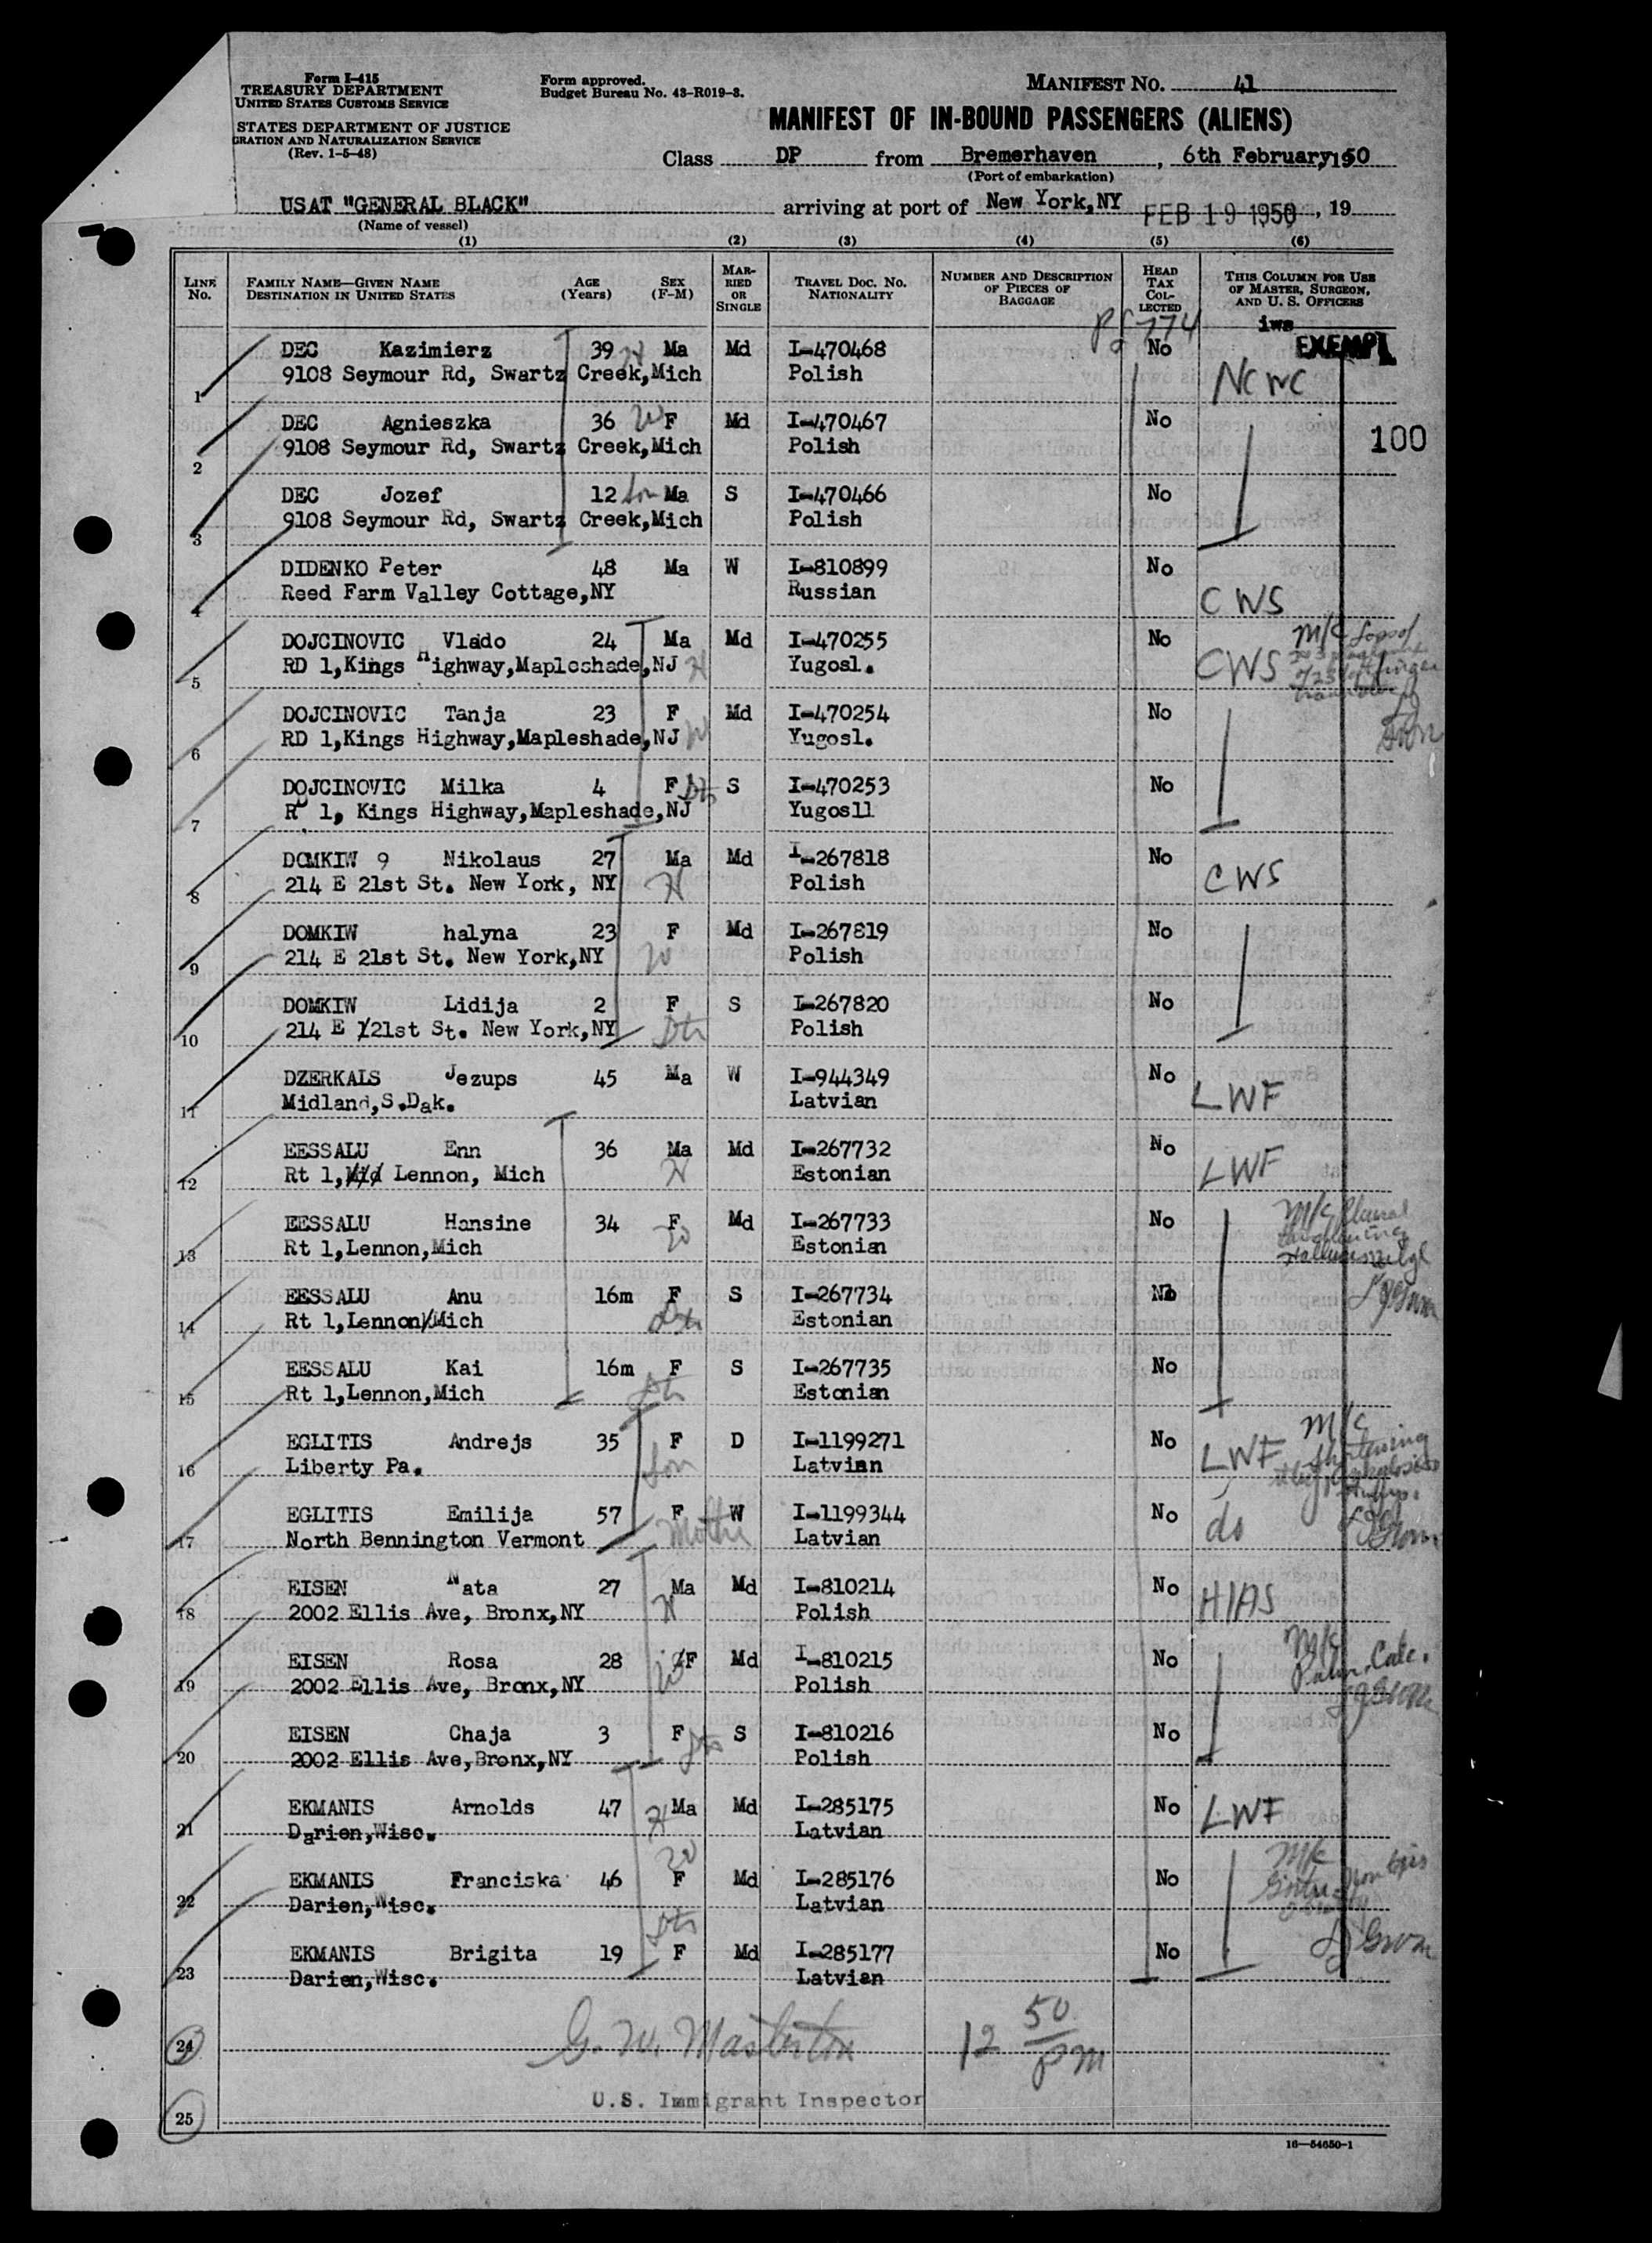 Form I-415
TREASURY DEPARTMENT
UNITED STATES CUSTOMS SERVICE
STATES DEPARTMENT OF JUSTICE
GRATION AND NATURALIZATION SERVICE
(Rev. 1-5-48)
Form approved.
Budget Bureau No. 43-R019-3.
MANIFEST NO. 41
MANIFEST OF IN-BOUND PASSENGERS (ALIENS)
Class DP from Bremerhaven, 6th February, 1950
(Port of embarkation)
USAT "GENERAL BLACK" arriving at port of New York, NY FEB 19 1950, 19
(Name of vessel)
(1) (2) (3) (4) (5) (6)
LINE NO. FAMILY NAME—GIVEN NAME DESTINATION IN UNITED STATES AGE (Years) SEX (F-M) MARRIED OR SINGLE TRAVEL DOC. NO. NATIONALITY NUMBER AND DESCRIPTION OF PIECES OF BAGGAGE HEAD TAX COLLECTED THIS COLUMN FOR USE OF MASTER, SURGEON, AND U. S. OFFICERS
iws
EXEMPT
1 DEC Kazimierz 39 H Ma Md I-470468 No NCWC
9108 Seymour Rd, Swartz Creek, Mich Polish
2 DEC Agnieszka 36 W F Md I-470467 No 100
9108 Seymour Rd, Swartz Creek, Mich Polish
3 DEC Jozef 12 Son Ma S I-470466 No
9108 Seymour Rd, Swartz Creek, Mich Polish
4 DIDENKO Peter 48 Ma W I-810899 No CWS
Reed Farm Valley Cottage, NY Russian
5 DOJCINOVIC Vlado 24 Ma Md I-470255 No CWS M/C
RD 1, Kings Highway, Mapleshade, NJ H Yugosl.
6 DOJCINOVIC Tanja 23 F Md I-470254 No
RD 1, Kings Highway, Mapleshade, NJ W Yugosl.
7 DOJCINOVIC Milka 4 F Dtr S I-470253 No
RD 1, Kings Highway, Mapleshade, NJ Yugosll
8 DOMKIW 9 Nikolaus 27 Ma Md I-267818 No CWS
214 E 21st St. New York, NY H Polish
9 DOMKIW halyna 23 F Md I-267819 No
214 E 21st St. New York, NY W Polish
10 DOMKIW Lidija 2 F S I-267820 No
214 E 21st St. New York, NY Dtr Polish
11 DZERKALS Jezups 45 Ma W I-944349 No LWF
Midland, S.Dak. Latvian
12 EESSALU Enn 36 Ma Md I-267732 No LWF
Rt 1, Lennon, Mich H Estonian
13 EESSALU Hansine 34 F Md I-267733 No M/C
Rt 1, Lennon, Mich W Estonian
14 EESSALU Anu 16m F S I-267734 No
Rt 1, Lennon, Mich Dtr Estonian
15 EESSALU Kai 16m F S I-267735 No
Rt 1, Lennon, Mich Dtr Estonian
16 EGLITIS Andrejs 35 F D I-1199271 No LWF M/C
Liberty Pa. Son Latvian
17 EGLITIS Emilija 57 F W I-1199344 No do
North Bennington Vermont Mother Latvian
18 EISEN Nata 27 Ma Md I-810214 No HIAS
2002 Ellis Ave, Bronx, NY H Polish
19 EISEN Rosa 28 F Md I-810215 No M/C Pulm. Calc.
2002 Ellis Ave, Bronx, NY W Polish
20 EISEN Chaja 3 F S I-810216 No
2002 Ellis Ave, Bronx, NY Dtr Polish
21 EKMANIS Arnolds 47 H Ma Md I-285175 No LWF
Darien, Wisc. Latvian
22 EKMANIS Franciska 46 W F Md I-285176 No M/C
Darien, Wisc. Latvian
23 EKMANIS Brigita 19 Dtr F Md I-285177 No
Darien, Wisc. Latvian
24 G. W. Masterton 12 50 PM
25 U.S. Immigrant Inspector
16-54650-1